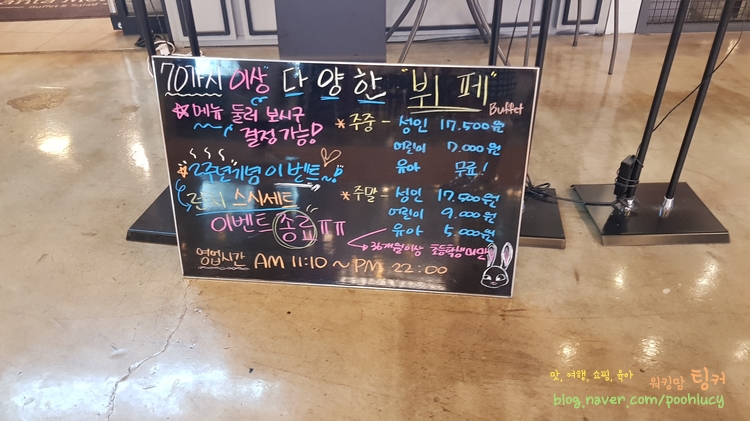 70가지 이상 다양한 "뷔페"
Buffet
메뉴 둘러 보시구
결정 가능!
2주년기념 이벤트~!
스시세트
이벤트 종료 ㅠㅠ
*주중 - 성인 17.500원
어린이 7.000원
유아 무료!
*주말 - 성인 17.500원
어린이 9.000원
유아 5.000원
36개월이상 초등학생미만
영업시간 AM 11:10 ~ PM 22:00
맛, 여행, 쇼핑, 육아
워킹맘 팅커
blog.naver.com/poohlucy